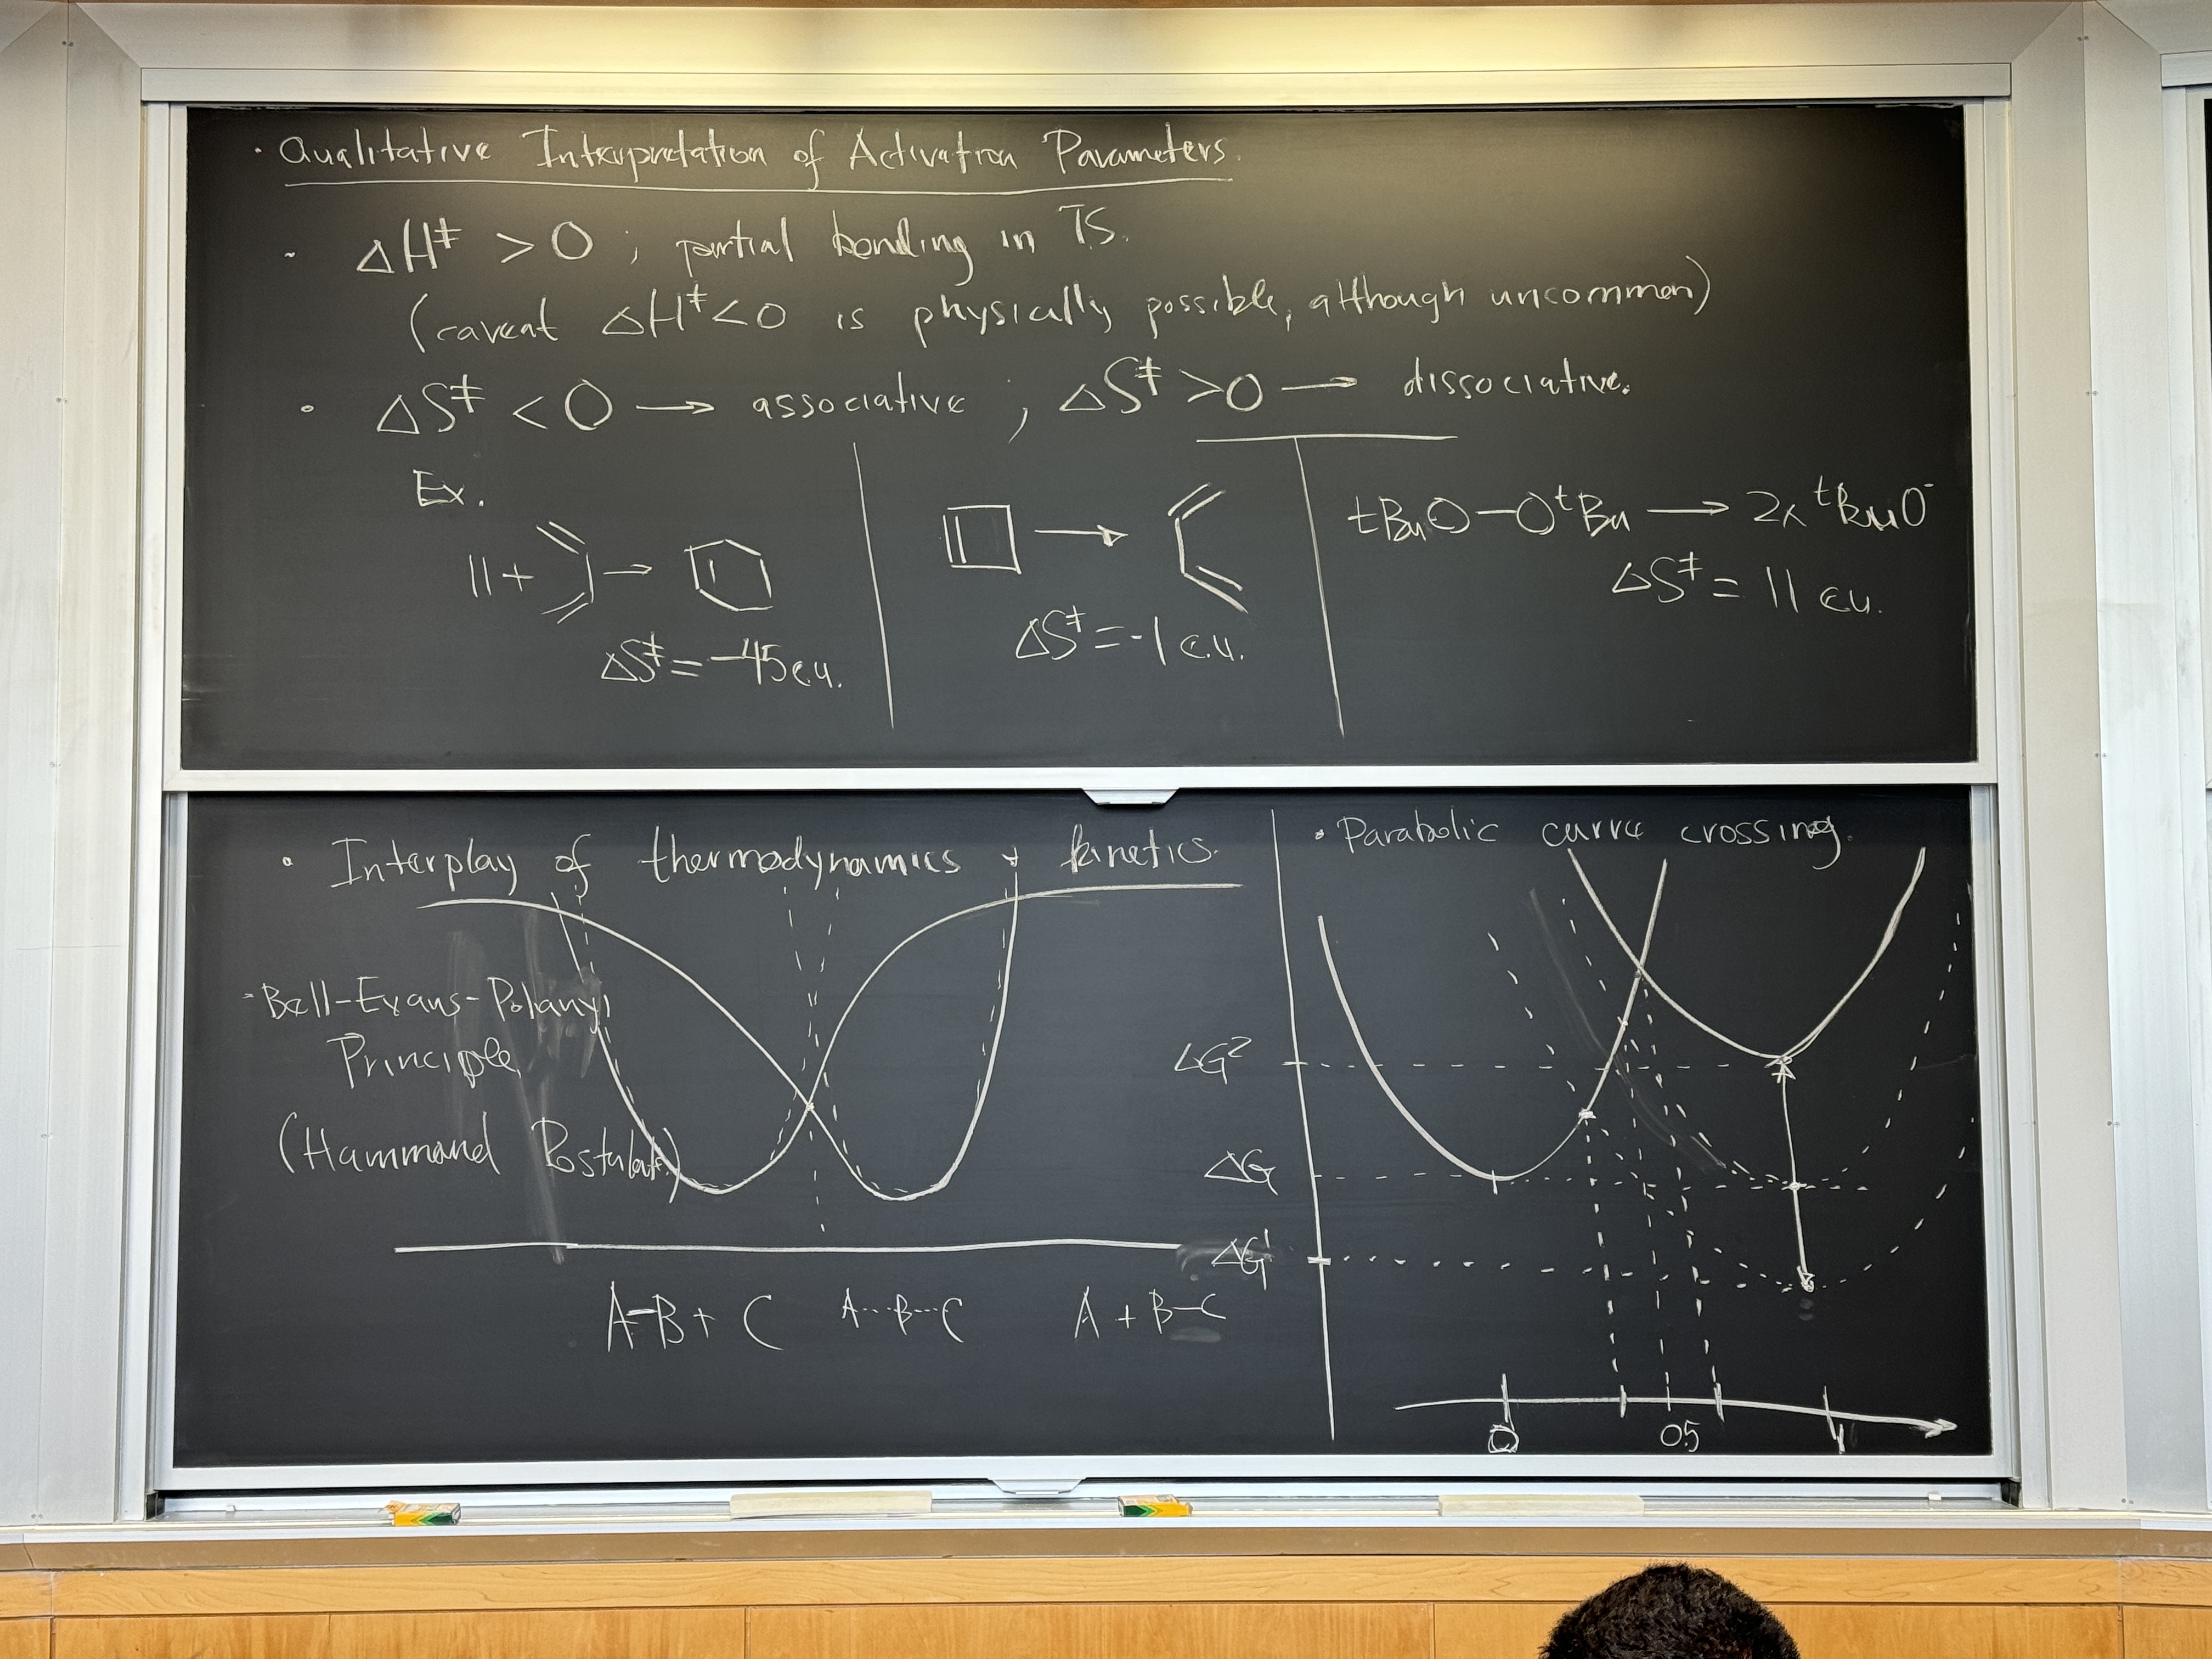 · Qualitative Interpretation of Activation Parameters.
· ΔH‡ > 0 ; partial bonding in TS.
(caveat ΔH‡<0 is physically possible, although uncommon)
· ΔS‡ < 0 → associative ; ΔS‡ >0 → dissociative.
Ex.
|| + →
ΔS‡ = -45 e.u.
→
ΔS‡ = -1 e.u.
tBuO—OtBu → 2x tBuO·
ΔS‡ = 11 e.u.
· Interplay of thermodynamics + kinetics.
· Bell-Evans-Polanyi
Principle
(Hammond Postulate)
A-B + C A---B---C A + B-C
· Parabolic curve crossing.
ΔG²
ΔG
ΔG¹
0 0.5 1